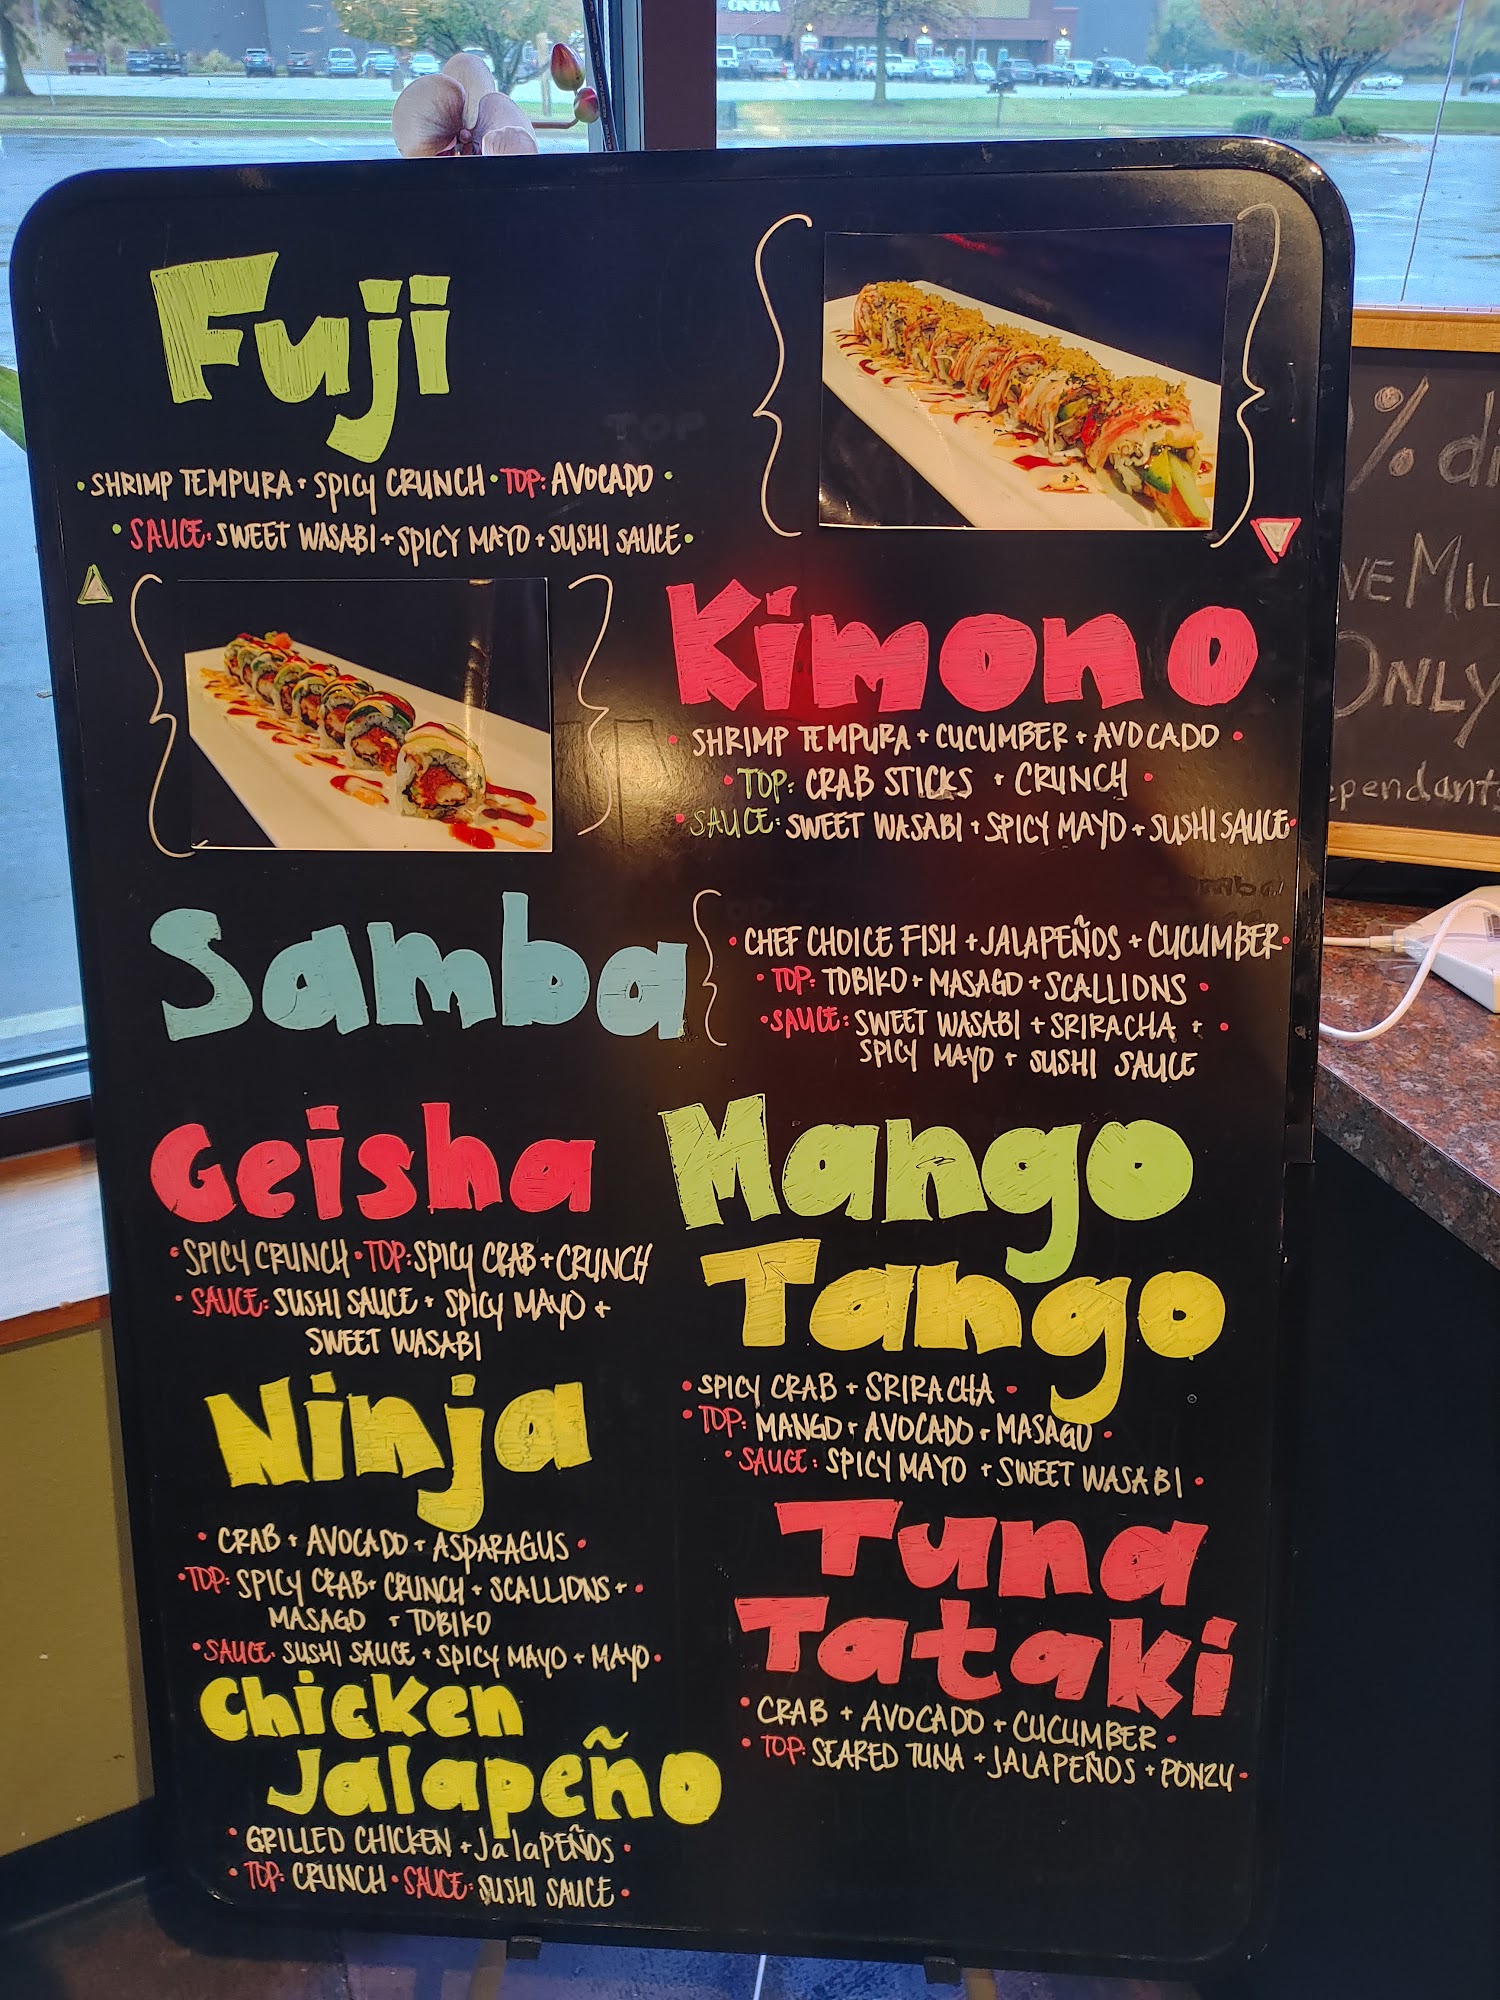 CINEMA
Fuji
• SHRIMP TEMPURA + SPICY CRUNCH • TOP: AVOCADO •
• SAUCE: SWEET WASABI + SPICY MAYO + SUSHI SAUCE •
Kimono
• SHRIMP TEMPURA + CUCUMBER + AVOCADO •
• TOP: CRAB STICKS + CRUNCH •
• SAUCE: SWEET WASABI + SPICY MAYO + SUSHI SAUCE •
Samba
• CHEF CHOICE FISH + JALAPEÑOS + CUCUMBER •
• TOP: TOBIKO + MASAGO + SCALLIONS •
• SAUCE: SWEET WASABI + SRIRACHA + •
SPICY MAYO + SUSHI SAUCE
Geisha
• SPICY CRUNCH • TOP: SPICY CRAB + CRUNCH
• SAUCE: SUSHI SAUCE + SPICY MAYO +
SWEET WASABI
Mango
Tango
• SPICY CRAB + SRIRACHA •
• TOP: MANGO + AVOCADO + MASAGO •
• SAUCE: SPICY MAYO + SWEET WASABI •
Ninja
• CRAB + AVOCADO + ASPARAGUS •
• TOP: SPICY CRAB + CRUNCH + SCALLIONS + •
MASAGO + TOBIKO
• SAUCE: SUSHI SAUCE + SPICY MAYO + MAYO •
Tuna
Tataki
• CRAB + AVOCADO + CUCUMBER •
• TOP: SEARED TUNA + JALAPEÑOS + PONZU •
Chicken
Jalapeño
• GRILLED CHICKEN + JalaPEÑOS •
• TOP: CRUNCH • SAUCE: SUSHI SAUCE •
% di
VE MIL
ONLY
ependants